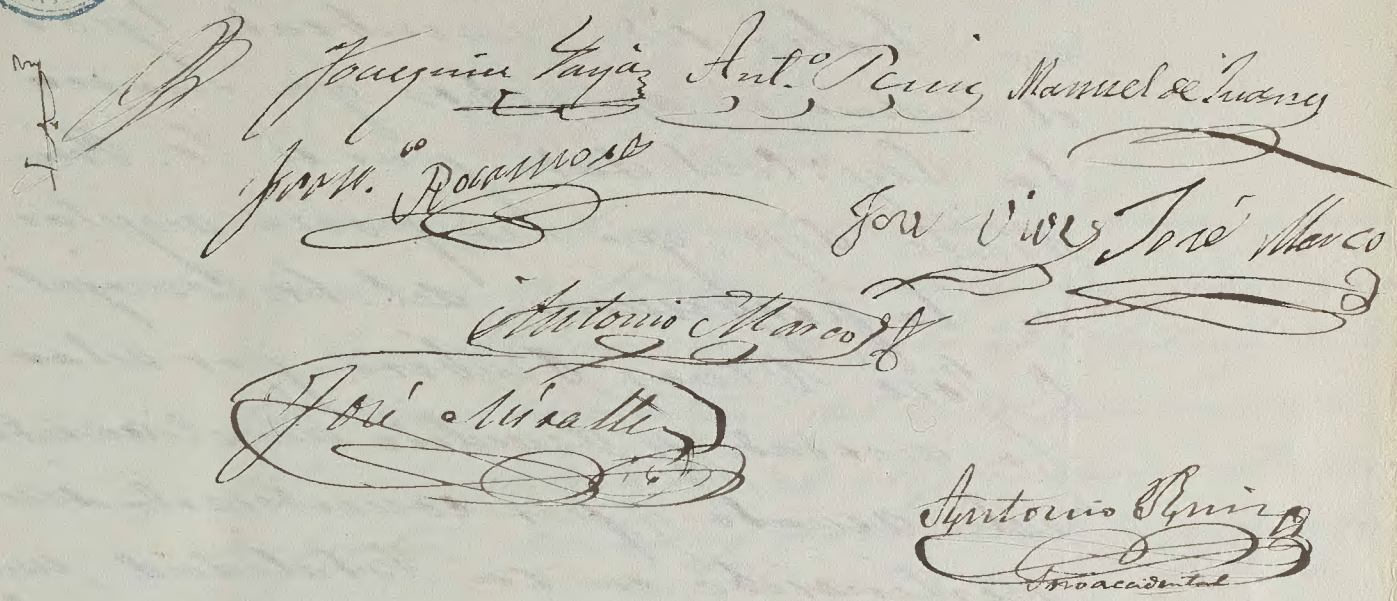 Joaquin Payá Antº Ruiz Manuel de Juany
Franco Rocamora
José Vives José Marco
Antonio Marco
José Miralles
Antonio Ruiz
Srio accidental